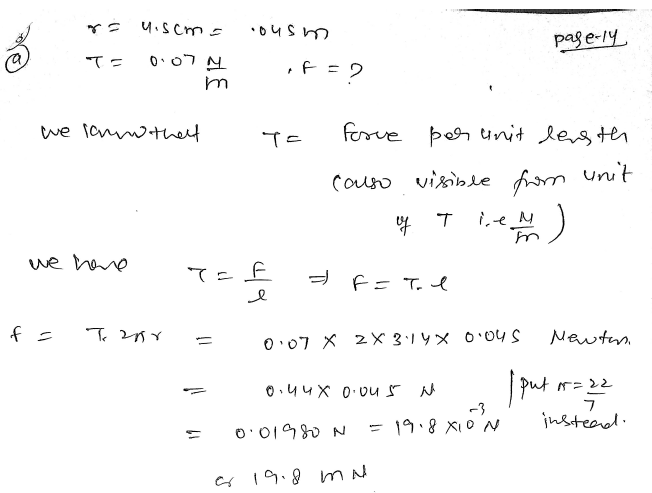 page-14
r = 4.5cm = .045 m
(a) T = 0.07 N/m , F = ?
we know that T = force per unit length
(also visible from unit
of T i.e N/m)
we have T = F/l ⇒ F = T. l
f = T. 2πr = 0.07 × 2×3.14× 0.045 Newton.
= 0.44× 0.045 N | put π = 22/7
= 0.01980 N = 19.8 ×10⁻³ N instead.
or 19.8 mN